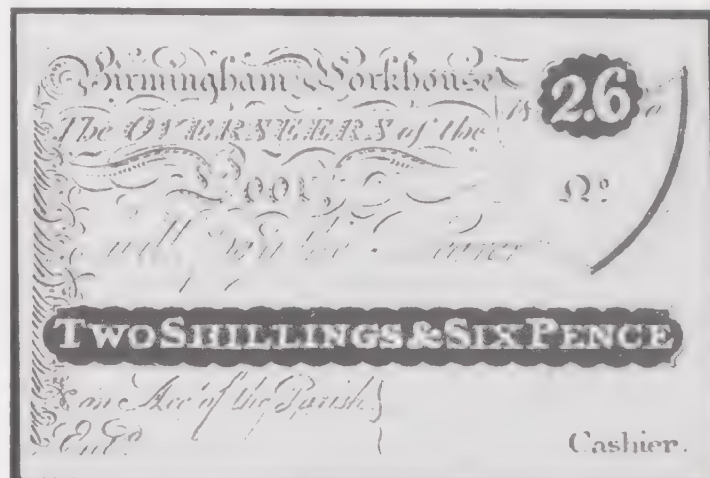 Birmingham Workhouse 18
2.6
The OVERSEERS of the
Poor, No
will pay the Bearer
TWO SHILLINGS & SIX PENCE
on Acct of the Parish
Entd
Cashier.